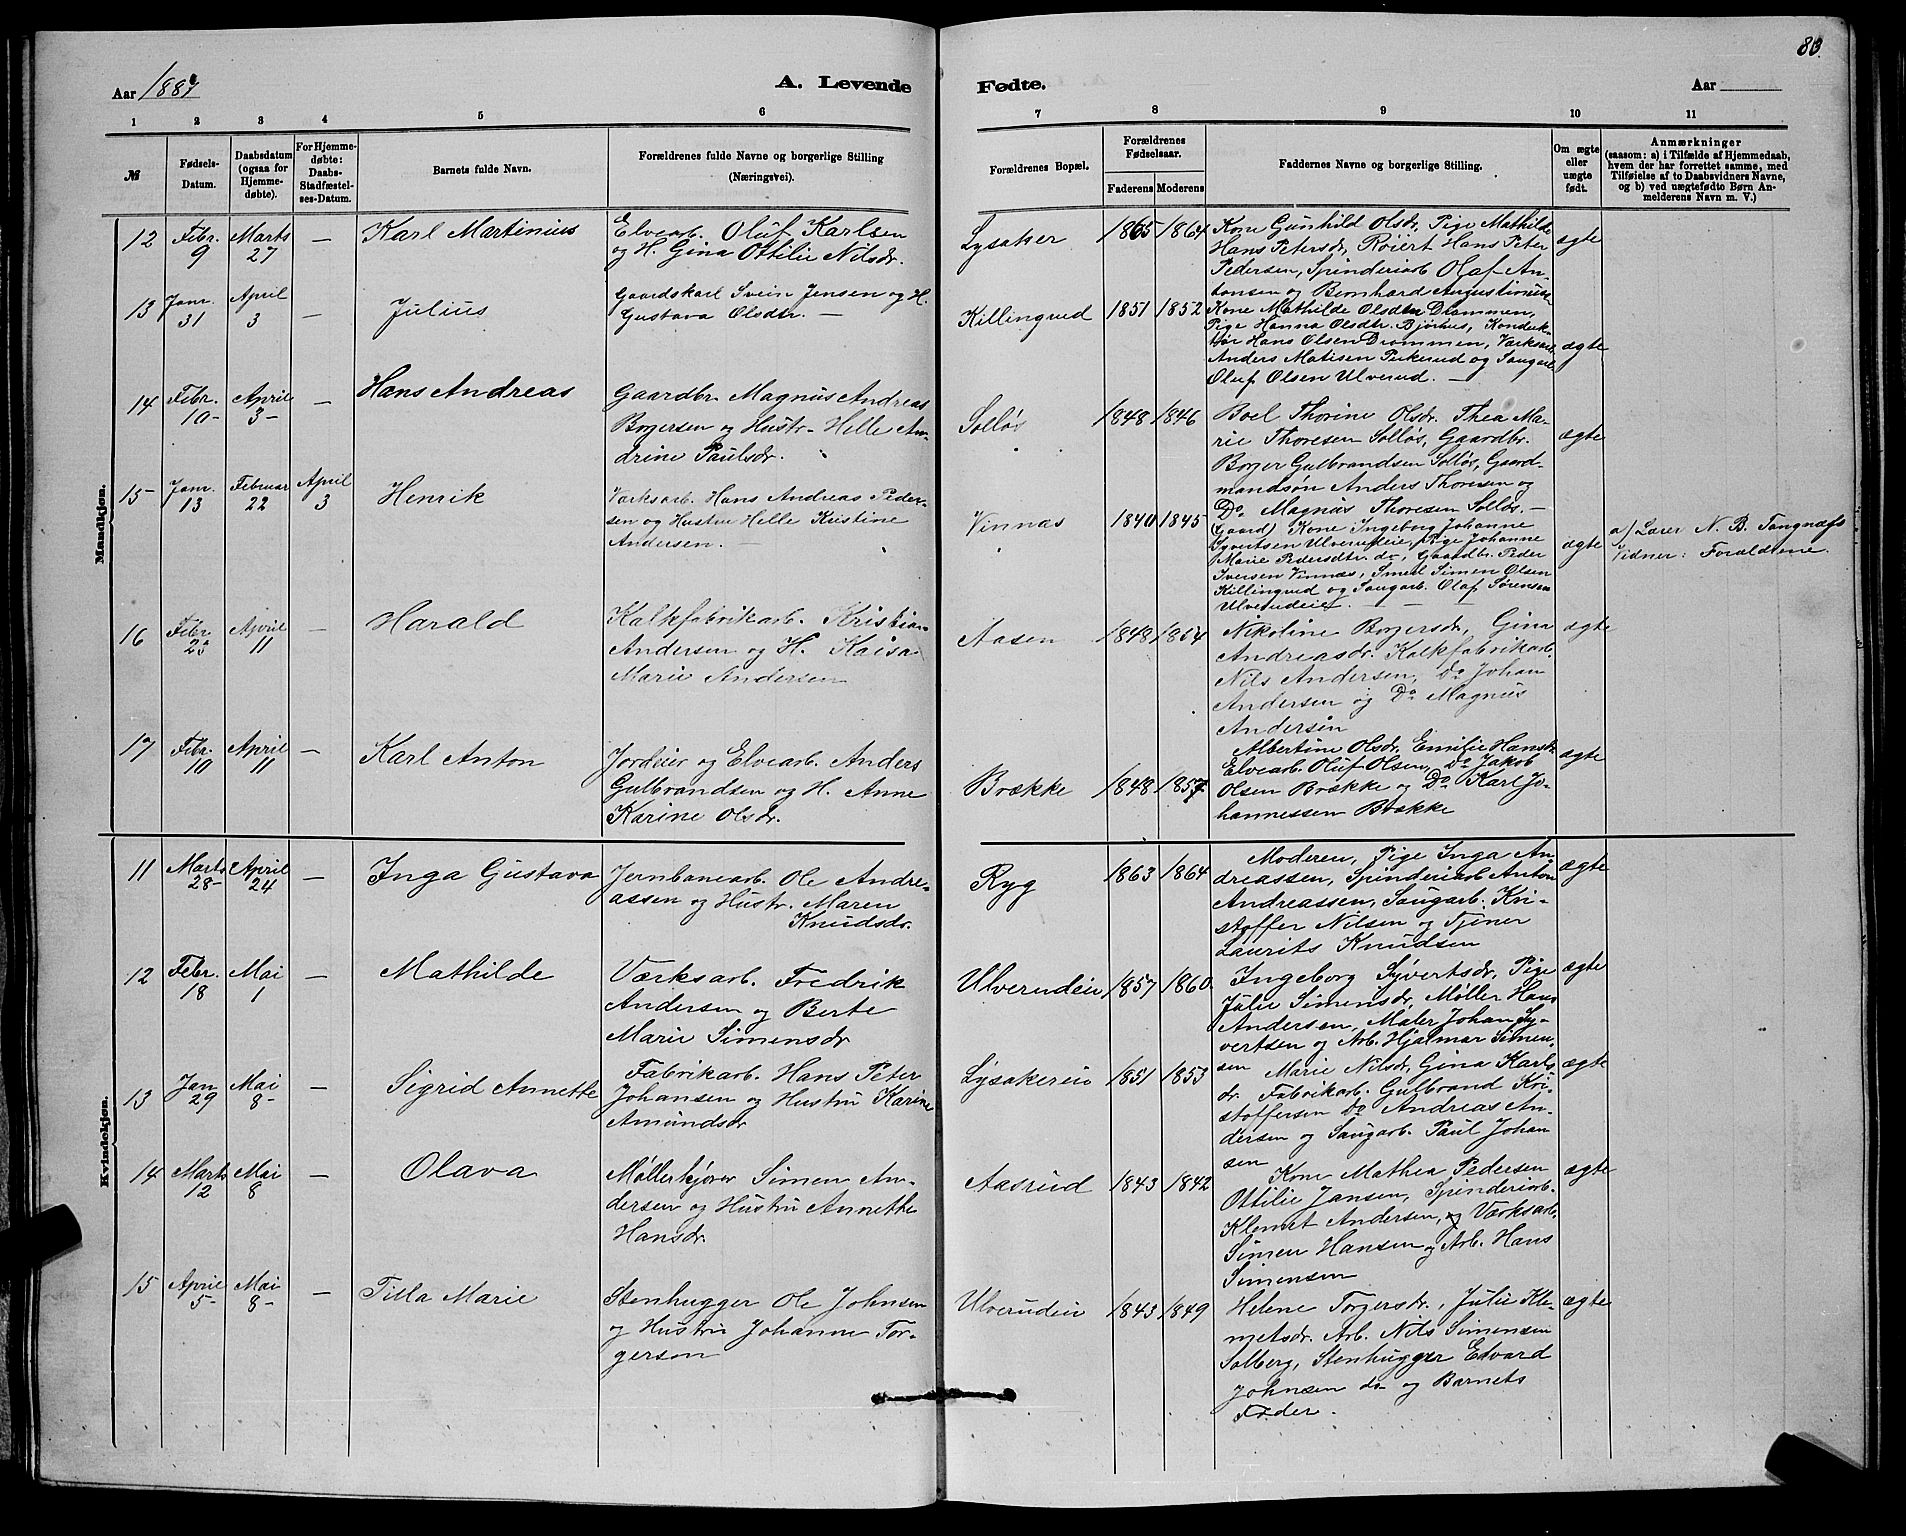 83.
Aar 1887
A. Levende
Fødte.
Aar
1 2 3 4 5 6
7 8 9 10 11
№
Fødsels-
Datum.
Daabsdatum
(ogsaa for
Hjemme-
døbte).
For Hjemme-
døbte:
Daabs-
Stadfæstel-
ses-Datum.
Barnets fulde Navn.
Forældrenes fulde Navne og borgerlige Stilling
(Næringsvei).
Forældrenes Bopæl.
Forældrenes
Fødselsaar.
Faderens Moderens
Faddernes Navne og borgerlige Stilling.
Om ægte
eller
uægte
født.
Anmærkninger
(saasom: a) i Tilfælde af Hjemmedaab,
hvem der har forrettet samme, med
Tilføielse af to Daabsvidners Navne,
og b) ved uægtefødte Børn An-
melderens Navn m. V.)
Mandkjøn.
12 Febr. 9 Marts 27 — Karl Martinius
Elvearb. Oluf Karlsen
og H. Gina Ottilie Nilsdr.
Lysaker 1865 1864
Kone Gunhild Olsdr, Pige Mathilde
Hans Petersdr, Roiert Hans Peter
Pedersen, Spinderiarb Olaf An-
tonsen og Bernhard Augustinusen
ægte
13 Janr. 31 April 3 — Julius
Gaardskarl Svein Jensen og H.
Gustava Olsdtr. —
Killingrud 1851 1852
Kone Mathilde Olsdtr Drammen,
Pige Hanna Olsdtr. Bjørhus, Konduk-
tør Hans Olsen Drammen, Værksarb.
Anders Matisen Pukerud og Saugarb
Oluf Olsen Ulverud. —
ægte
14 Febr. 10- April 3- — Hans Andreas
Gaardbr. Magnus Andreas
Borgersen og Hustr. Helle An-
drine Paulsdr.
Solløs 1848 1846
Boel Thorine Olsdr. Thea Ma-
rie Thoresen Solløs, Gaardbr.
Borger Gulbrandsen Solløs, Gaard-
mandsøn Anders Thoresen og
Do Magnus Thoresen Solløs. —
ægte
15- Janr. 13 Februar 22 April 3 Henrik
Værksarb. Hans Andreas Peder-
sen og Hustru Helle Kristine
Andersen. —
Vinnæs 1840 1845
(Gaard) Kone Ingeborg Johanne
Syvertsen Ulverudeie, Pige Johanne
Marie Pedersdtr. do, Gaardbr. Peder
Iversen Vinnæs, Smed Simen Olsen
Killingrud og Saugarb. Olaf Sørensen
Ulverudeie. — — —
ægte
a/ Lærer N. B. Tangnæs
Vidner: Forældrene.
16 Febr. 23 April 11 — Harald
Kalkfabrikarb. Kristian
Andersen og H. Kaisa
Marie Andersen
Aasen 1848 1864
Nikoline Borgersdr, Gina
Andreasdr. Kalkfabrikarb.
Nils Andersen, Do Johan
Andersen og Do Magnus
Andersen
ægte
17 Febr. 10 April 11 — Karl Anton
Jordeier og Elvearb. Anders
Gulbrandsen og H. Anne
Karine Olsdr.
Brække 1848 1857
Albertine Olsdr. Emilie Hansdr.
Elvearb. Oluf Olsen, Do Jakob
Olsen Brække og Do Karl Jo-
hannessen Brække
ægte
Kvindekjøn.
11 Marts 28- April 24 — Inga Gustava
Jernbanearb. Ole Andre-
assen og Hustr. Maren
Knudsdr.
Ryg 1863 1864
Moderen, Pige Inga An-
dreassen, Spinderiarb Anton
Andreassen, Saugarb. Kri-
stoffer Nilsen og Tjener
Laurits Knudsen
ægte
12 Febr. 18 Mai 1 — Mathilde
Værksarb. Fredrik
Andersen og Berte
Marie Simensdr
Ulverudeie 1857 1860
Ingeborg Syvertsdr, Pige
Julie Simensdr, Møller Hans
Andersen, Maler Johan Sy-
vertsen og Arb. Hjalmar Simen-
sen
ægte
13 Jan 29 Mai 8- — Sigrid Annette
Fabrikarb. Hans Peter
Johansen og Hustru Karine
Amundsdr
Lysakereie 1851 1853
Marie Nilsdr, Gina Karls-
dr. Fabrikarb. Gulbrand Kri-
stoffersen Do Andreas An-
dersen og Saugarb. Paul Johan
sen
ægte
14 Marts 12 Mai 8 — Olava
Møllerkjører Simen An-
dersen og Hustru Annette
Hansdr.
Aasrud 1843 1842
Kone Mathea Pedersen
Ottilie Jansen, Spinderiarb.
Klemet Andersen, og Værksarb.
Simen Hansen og Arb. Hans
Simensen
ægte
15 April 5- Mai 8- — Tilla Marie
Stenhugger Ole Johnsen
og Hustru Johanne Tor-
gersen
Ulverudeie 1843 1849
Helene Torgersdr., Julie Kle-
metsdr. Arb. Nils Simensen
Solberg, Stenhugger Edvard
Johnsen do og Barnets
Fader.
ægte